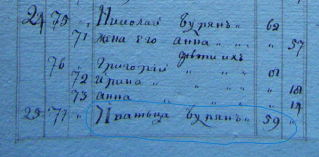 24 75 " Николай Бурянъ " 62
71 жена его Анна " " " 57
дѣти ихъ
76 " Григорій " "
72 " Ирина " " " 18
73 " Анна " " "
25 77 " Игнатъ Бурянъ " 59 "